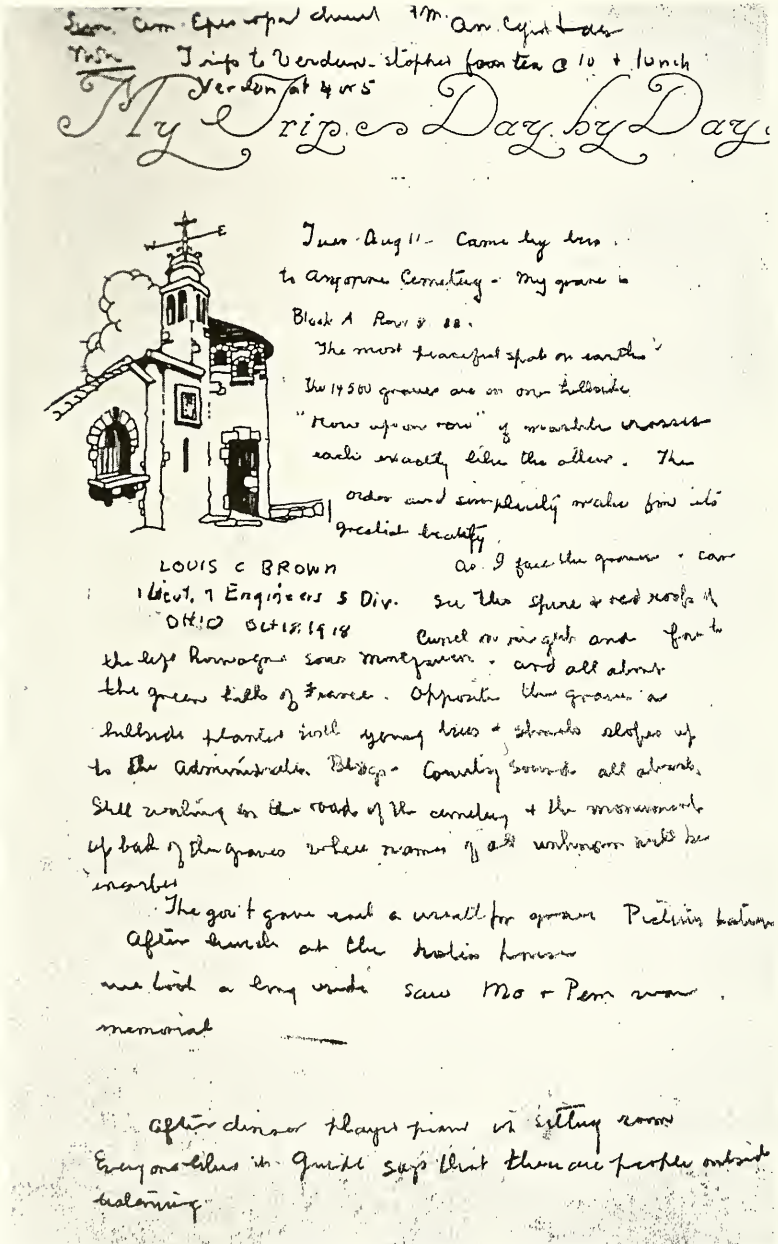 Sun. Am. Episcopal church + Am
Mon Trip to Verdun - stopped for tea @ 10 + lunch
Verdun at 4 or 5
My Trip Day by Day
W E
Tues - Aug 11 - Came by bus
to Argonne Cemetery - My grave is
Block A Row 8 22.
"The most peaceful spot on earth"
The 14500 graves are on one hillside
"Row upon row" of marble crosses
each exactly like the other. The
order and simplicity make for its
greatest beauty.
LOUIS C BROWN
1 Lieut, 7 Engineers 5 Div.
OHIO Oct 18, 1918
As I face the graves I can
see the spire & red roofs of
Cunel on right and far to
the left Romagne sous Montfaucon - and all about
the green hills of France. Opposite the graves a
hillside planted with young trees & shrubs slopes up
to the Administration Bldgs - Country sounds all about.
Still working on the roads of the cemetery & the monument
up back of the graves where names of all unknown will be
inscribed
The gov't gave each a wreath for grave Pictures taken
After lunch at the hostess house
we took a long ride saw Mo & Penn war
memorial
After dinner played piano in sitting room
Everyone likes it. Guide says that there are people outside
listening